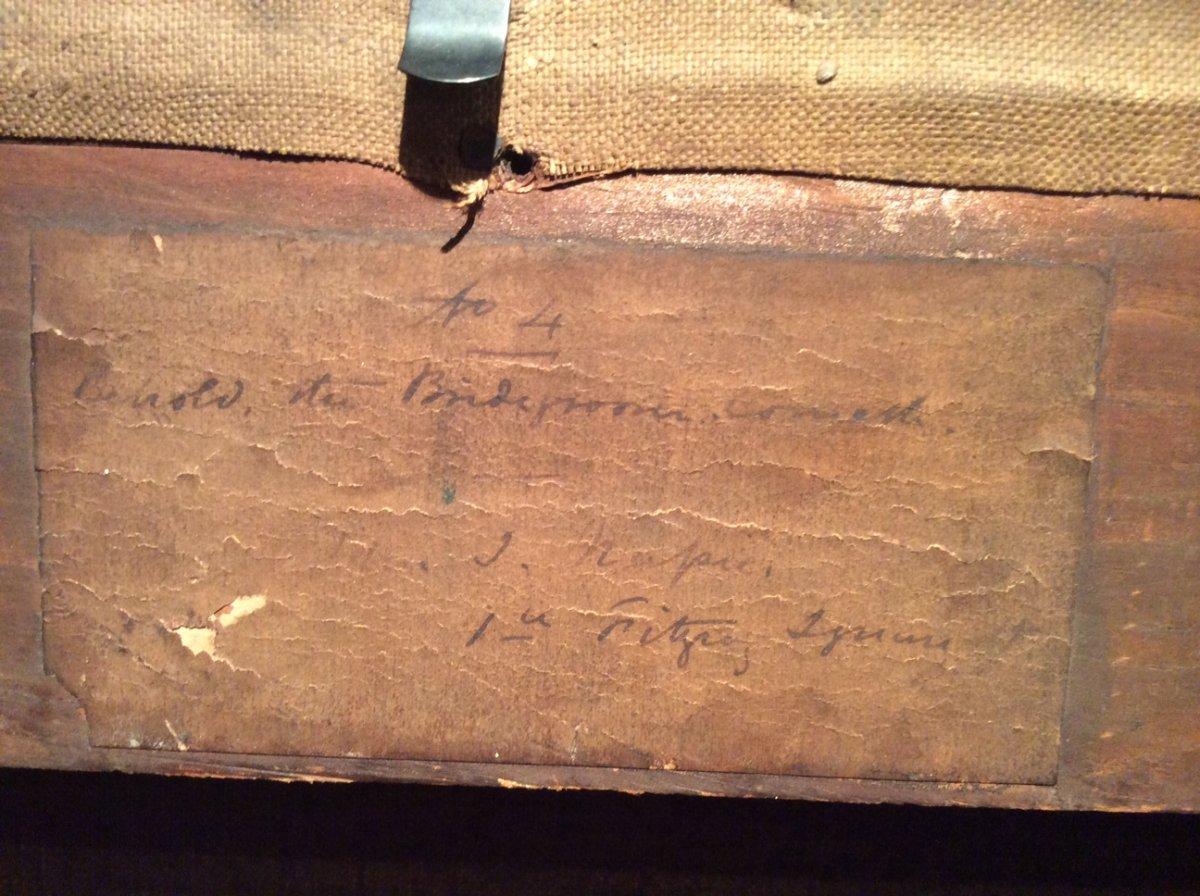 No 4
Behold, the Bridegroom, cometh.
J. Napier.
Fitzroy Square